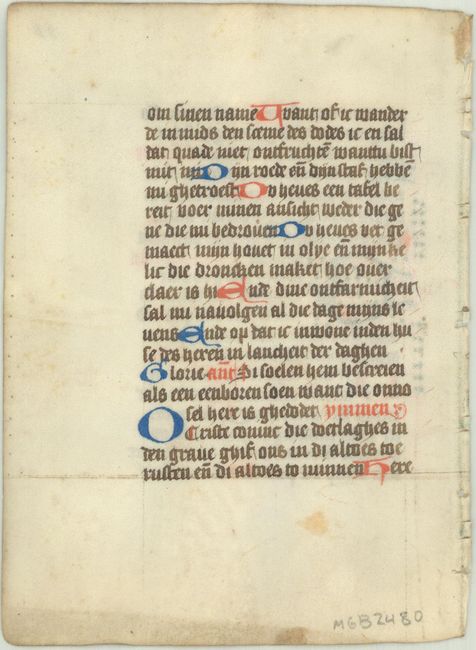 om sinen name Want of ic wander
de in mids den sceme des dodes ic en sal
dat quade niet ontfruchtē wanttu bist
mit mi Dijn roede eñ dijn staf hebbē
mi ghetroest Du heves een tafel be
reit voer minen ansicht weder die ge
ne die mi bedroven Du heves vet ge
maect mijn hovet in olye eñ mijn ke
lic die droncken maket hoe over
claer is hi Ende dine ontfarmicheit
sal mi navolgen al die dage mijns le
vens Ende op dat ic inwone inden hu
se des heren in lancheit der daghen
Glorie ant Si soelen hem bescreien
als een eenboren soen want die onno
sel here is ghedodet ymmen
O Criste coninc die doetlaghes in
den grave ghif ons in di altoes toe
rusten eñ di altoes to minnen Here
MGB2480